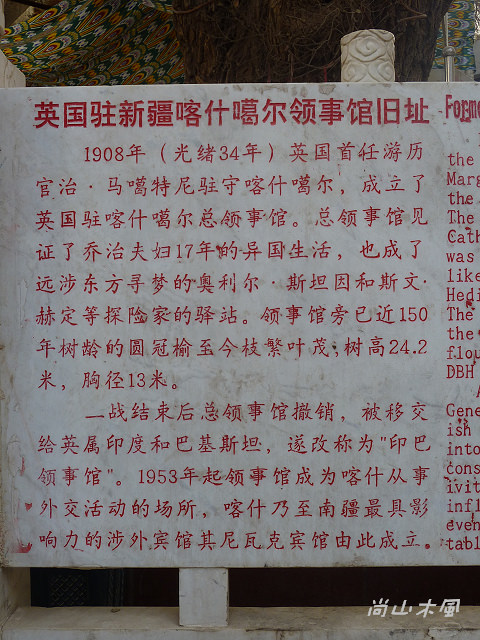 英国驻新疆喀什噶尔领事馆旧址
1908年（光绪34年）英国首任游历
官治·马噶特尼驻守喀什噶尔，成立了
英国驻喀什噶尔总领事馆。总领事馆见
证了乔治夫妇17年的异国生活，也成了
远涉东方寻梦的奥利尔·斯坦因和斯文·
赫定等探险家的驿站。领事馆旁已近150
年树龄的圆冠榆至今枝繁叶茂,树高24.2
米，胸径13米。
二战结束后总领事馆撤销，被移交
给英属印度和巴基斯坦，遂改称为"印巴
领事馆"。1953年起领事馆成为喀什从事
外交活动的场所，喀什乃至南疆最具影
响力的涉外宾馆其尼瓦克宾馆由此成立。
the
Marg
the
The
Cath
was
like
Hedi
The
the
flou
DBH
Gene
ish
into
cons
ivit
infl
even
tabl
尚山木風